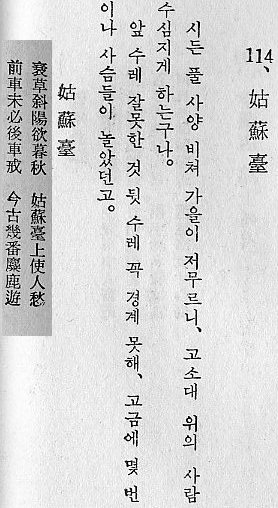 114、姑蘇臺
시든 풀 사양 비쳐 가을이 저무르니、고소대 위의 사람
수심지게 하는구나。
앞 수레 잘못한 것 뒷 수레 꼭 경계 못해、고금에 몇 번
이나 사슴들이 놀았던고。
姑蘇臺
衰草斜陽欲暮秋 姑蘇臺上使人愁
前車未必後車戒 今古幾番麋鹿遊